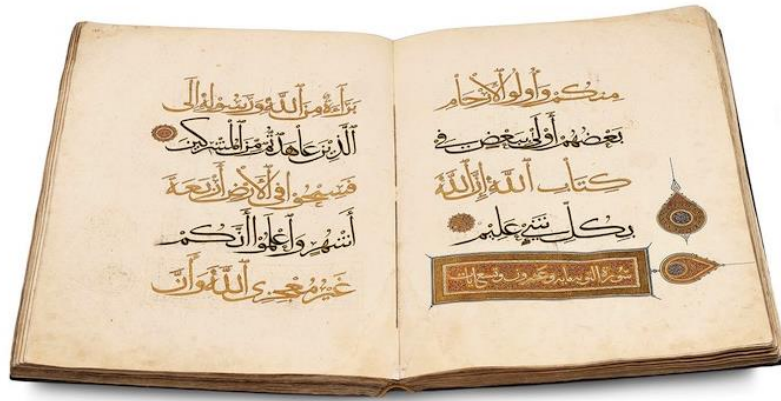 مِنكُمْ وَأُولُو الْأَرْحَامِ
بَعْضُهُمْ أَوْلَى بِبَعْضٍ فِي
كِتَابِ اللَّهِ إِنَّ اللَّهَ
بِكُلِّ شَيْءٍ عَلِيمٌ
سورة التوبة مائة وعشرون وتسع آيات
بَرَاءَةٌ مِنَ اللَّهِ وَرَسُولِهِ إِلَى
الَّذِينَ عَاهَدتُّم مِنَ الْمُشْرِكِينَ
فَسِيحُوا فِي الْأَرْضِ أَرْبَعَةَ
أَشْهُرٍ وَاعْلَمُوا أَنَّكُمْ
غَيْرُ مُعْجِزِي اللَّهِ وَأَنَّ